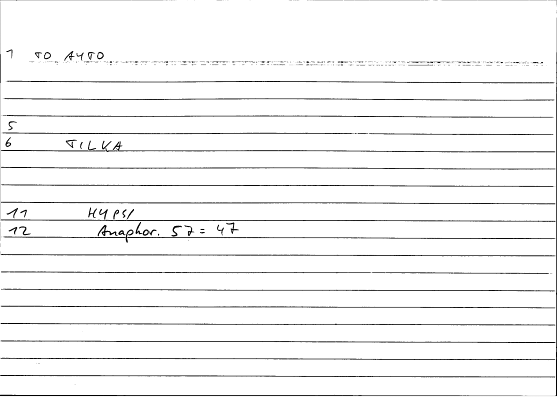 1 TO AYTO
5
6 TILKA
11 HYPSI
12 Anaphor. 57 = 47